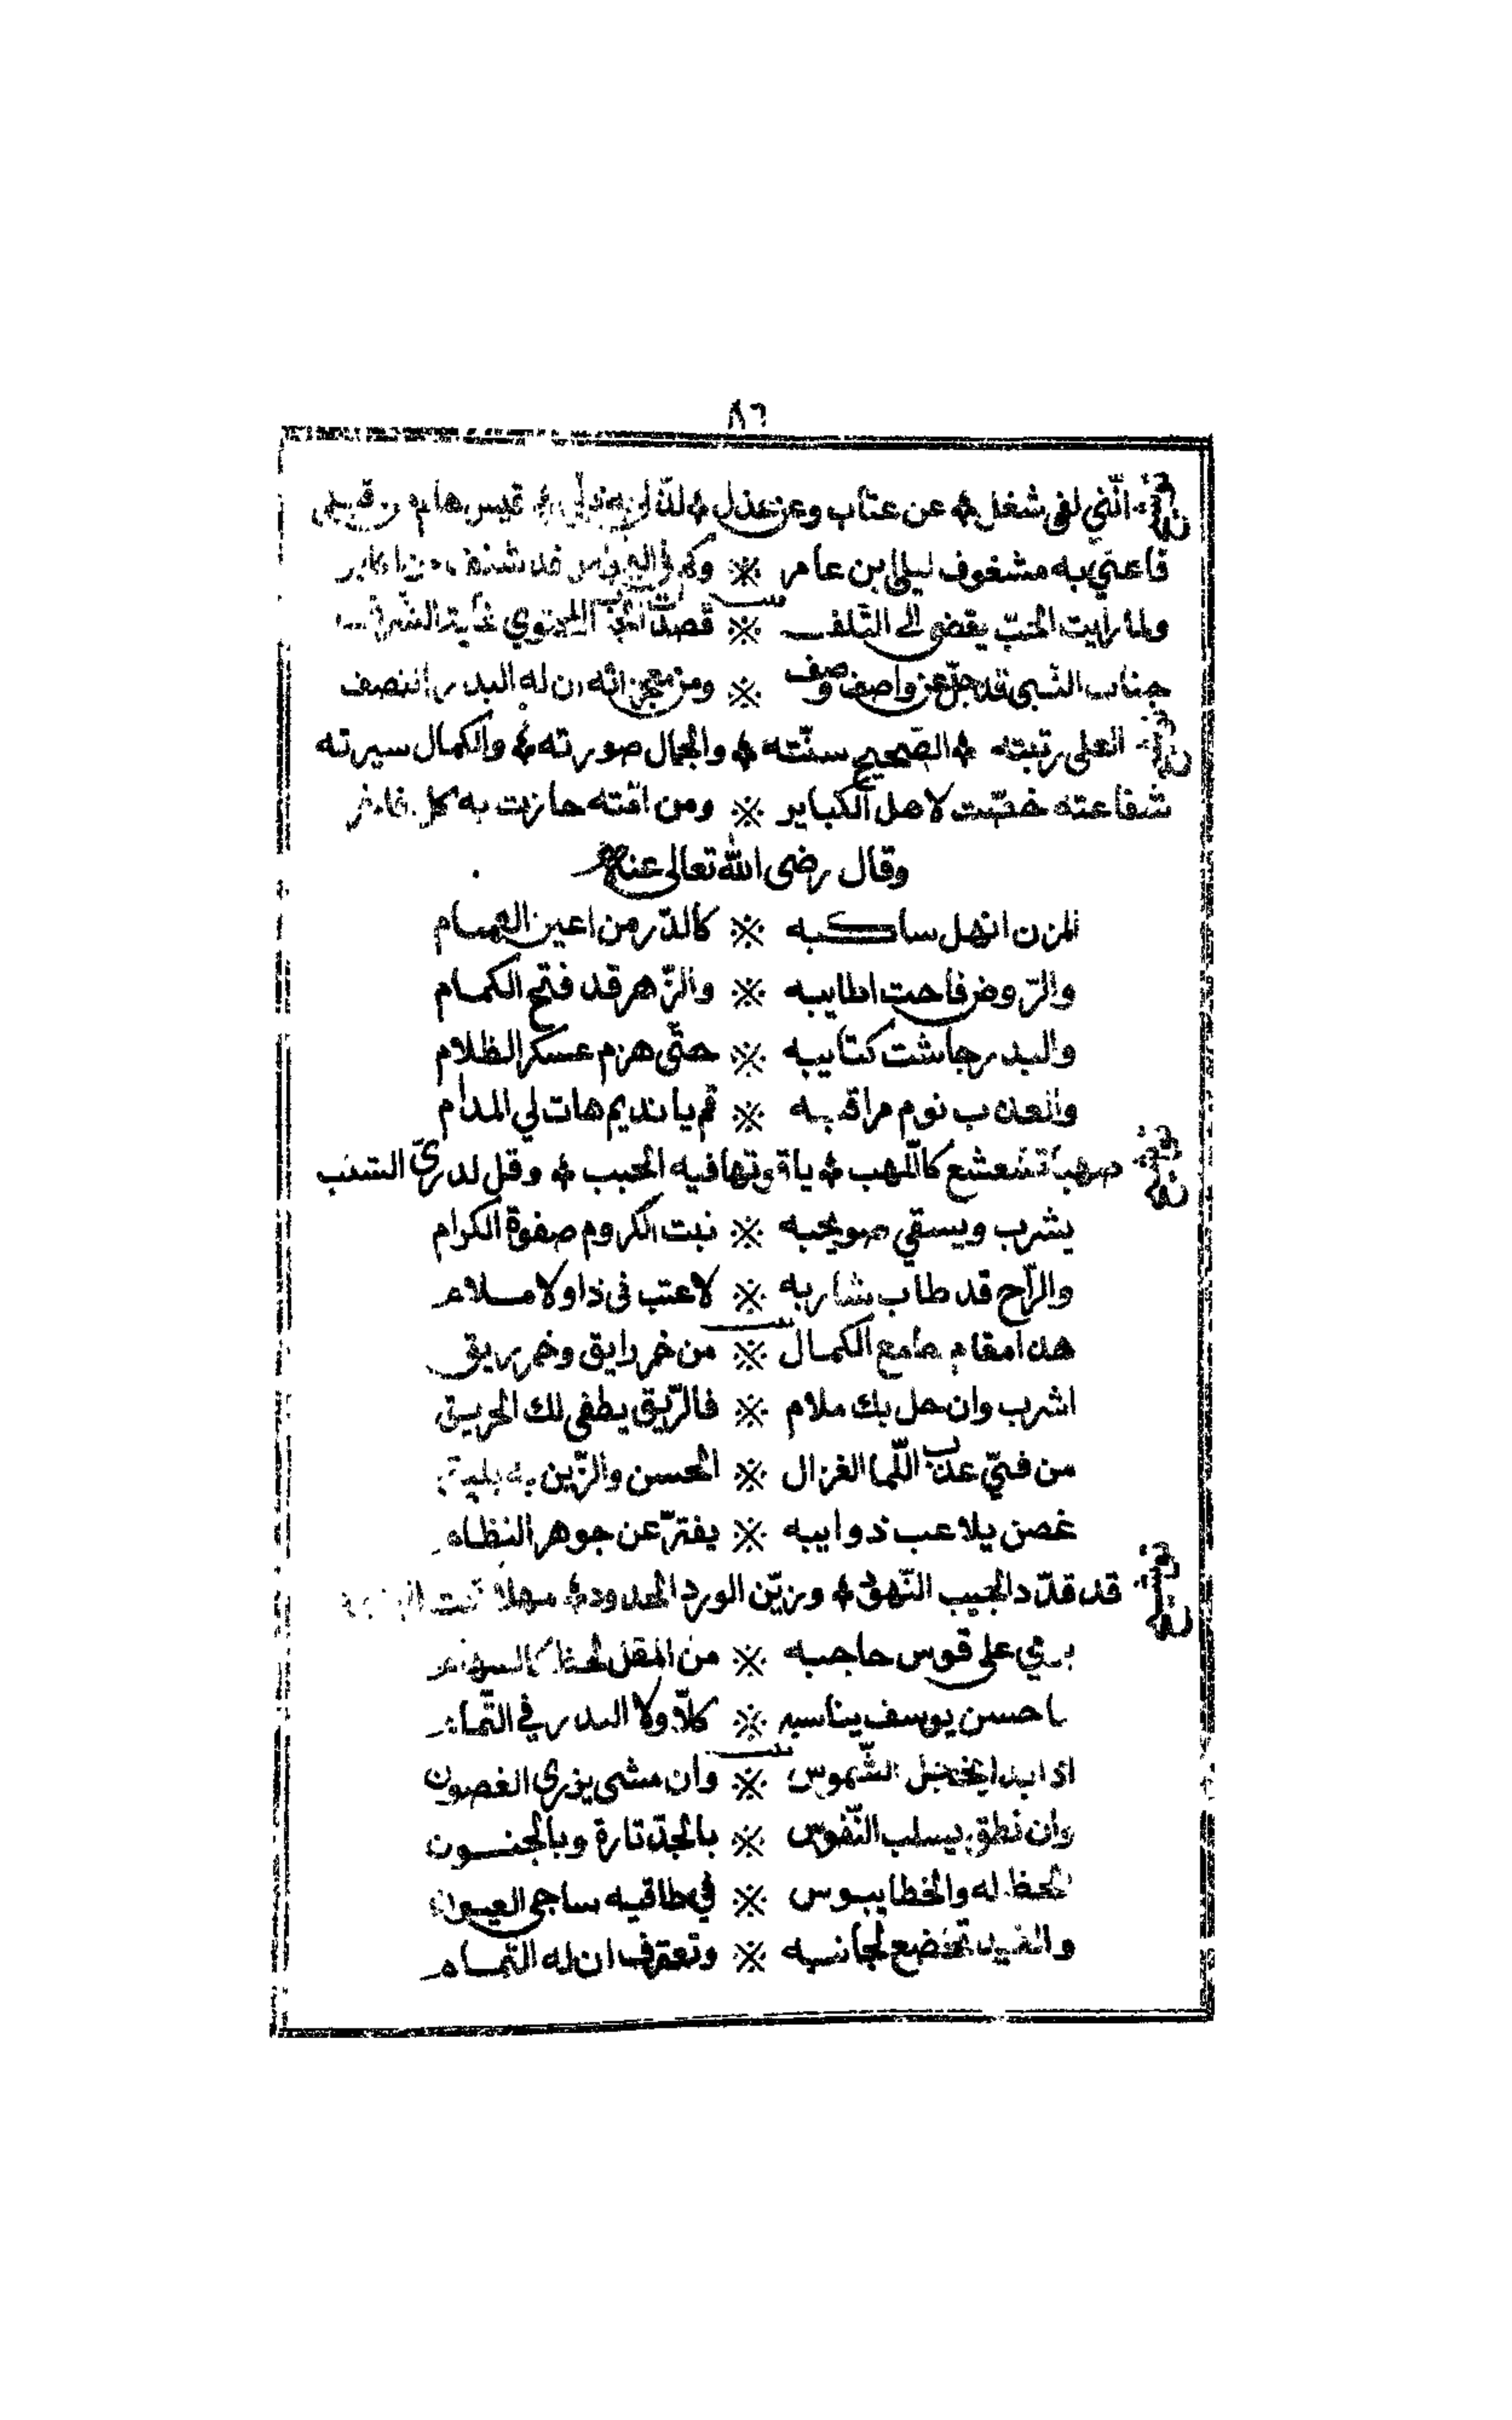 ٨٦
توشيح انّني لفي شغل عن عتاب وعن عذل لذّ لي به قيس هام من قبلي
فاعنّي به مشغوف ليلى ابن عامر ※ وكم في قد شنف من
ولما رايت الحبّ يقضي الى التّلف ※ قصدت المحتوي غاية الشّرف
بيت
جناب النّبي قد جلّ عن واصف وصف ※ ومن معجزاته ان له البدر انتصف
توشيح العلى رتبته الصّحيح سنّته والجمال صورته والكمال سيرته
شفاعته خصّت لاهل الكباير ※ ومن امّته حازت به كل فاخر
وقال رضى الله تعالى عنه
المزن انهل ساكبه ※ كالدّر من اعين الغمام
والرّوض فاحت اطايبه ※ والزّهر قد فتح الكمام
والبدر جاشت كتايبه ※ حتّى هزم عسكر الظلام
والعذب نوم مراقبه ※ قم يا نديم هات لي المدام
توشيح صهبا تشعشع كاللّهب ياقوتها فيه الحبب وقل لدرّي الشنب
يشرب ويسقي صويحبه ※ نبت الكروم صفوة الكرام
والرّاح قد طاب شاربه ※ لا عتب في ذا ولا ملام
بيت
هذا مقام جامع الكمال ※ من خمر رايق وخمر ريق
اشرب وان حل بك ملام ※ فالرّيق يطفي لك الحريق
من فتيّ عذب اللّما الغزال ※ الحسن والزّين به يليق
غصن يلاعب ذوايبه ※ يفترّ عن جوهر النظام
توشيح قد قدّد الجيب النّهود وزيّن الورد الخدود مهلا
يرمي على قوس حاجبه ※ من المقل لحظ كالسهام
ما حسن يوسف يناسبه ※ كلّا ولا البدر في التّمام
بيت
اذا بدا يخجل الشّموس ※ وان مشى يزري الغصون
وان نطق يسلب النّفوس ※ بالجدّ تارة وبالجنون
لحظ له والخطا يبوس ※ في طاقيه ساجي العيون
والغيد تخضع لجانبه ※ وتعترف ان له التمام